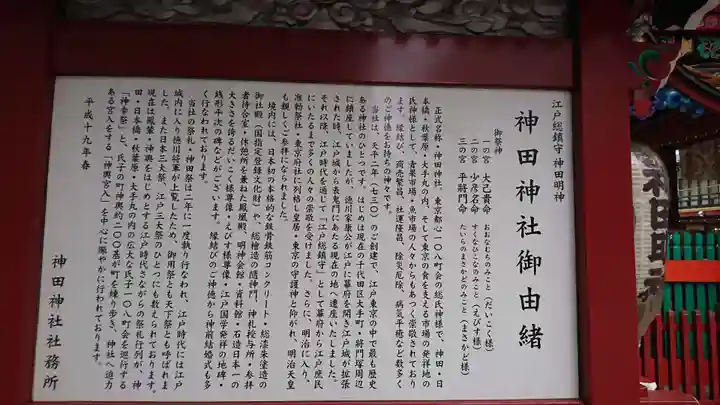 江戸総鎮守 神田明神
神田神社御由緒
御祭神
一の宮 大己貴命 おおなむちのみこと(だいこく様)
二の宮 少彦名命 すくなひこなのみこと(えびす様)
三の宮 平将門命 たいらのまさかどのみこと(まさかど様)
正式名称・神田神社。東京都心一〇八町会の総氏神様で、神田・日
本橋・秋葉原・大手丸の内、そして東京の食を支える市場の発祥地の
氏神様として、青果市場・魚市場の人々からもあつく崇敬されており
ます。縁結び、商売繁昌、社運隆昌、除災厄除、病気平癒など数多く
のご神徳をお持ちの神々です。
当社は、天平二年(七三〇)のご創建で、江戸東京の中で最も歴史
ある神社のひとつです。はじめは現在の千代田区大手町・将門塚周辺
に鎮座していましたが、徳川家康公が江戸に幕府を開き江戸城が拡張
された時、江戸城から表鬼門にあたる現在の地へ遷座いたしました。
それ以降、江戸時代を通じて「江戸総鎮守」として幕府から江戸庶民
にいたるまで多くの人々の崇敬を受けました。さらに、明治に入り、
准勅祭社・東京府社に列格し皇居・東京の守護神と仰がれ、明治天皇
も親しくご参拝になられました。
境内には、日本初の本格的な鉄骨鉄筋コンクリート・総漆朱塗の
御社殿(国指定登録文化財)や、総檜造の隨神門、神札授与所・参拝
者待合室・休憩所を兼ねた鳳凰殿、明神会館・資料館、石造日本一の
大きさを誇るだいこく様尊像・えびす様尊像・江戸国学発祥の地碑・
銭形平次の碑などがございます。縁結びのご神徳から神前結婚式も多
く行なわれております。
当社の祭礼・神田祭は二年に一度執り行なわれ、江戸時代には江戸
城内に入り徳川将軍が上覧したため、御用祭とも天下祭とも呼ばれま
した。また日本三大祭、江戸三大祭のひとつにも数えられております。
現在は鳳輦・神輿をはじめとする江戸時代さながらの祭礼行列が、神
田・日本橋・秋葉原・大手丸の内の広大な氏子一〇八町会を巡行する
「神幸祭」と、氏子の町神輿約二〇〇基が町を練り歩き、神社へ迫力
ある宮入をする「神輿宮入」を中心に賑やかに行われております。
平成十九年春
神田神社社務所